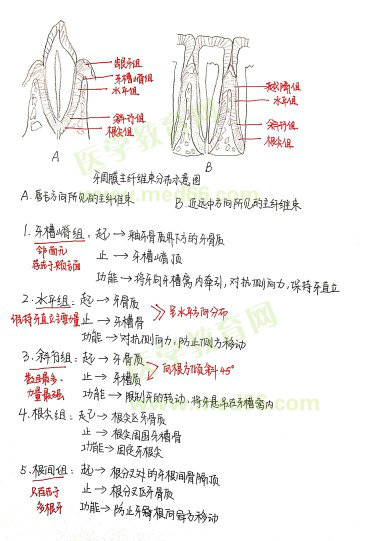 牙龈组
牙槽嵴组
水平组
斜行组
根尖组
越隔组
水平组
斜行组
根尖组
A
B
牙周膜主纤维束分布示意图
A.唇舌方向所见的主纤维束
B.近远中方向所见的主纤维束
医学教育网
www.med66.com
1.牙槽嵴组:起→釉牙骨质界下方的牙骨质
邻面无
存在于颊舌面
止→牙槽嵴顶
功能→将牙向牙槽窝内牵引,对抗侧向力,保持牙直立
2.水平组:起→牙骨质
呈水平方向分布
保持牙直立主力量
止→牙槽骨
功能→对抗侧向力,防止侧方移动
医学教育网
3.斜行组:起→牙骨质
向根方倾斜45°
数目最多、
力量最强
止→牙槽质
功能→限制牙的转动,将牙悬吊在牙槽窝内
4.根尖组:起→根尖区牙骨质
止→根尖周围牙槽骨
功能→固定牙根尖
5.根间组:起→根分叉处的牙根间骨隔顶
只存在于
多根牙
止→根分叉区牙骨质
功能→防止牙根向冠方移动